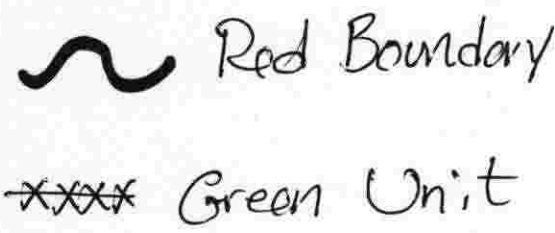 Red Boundary
Green Unit